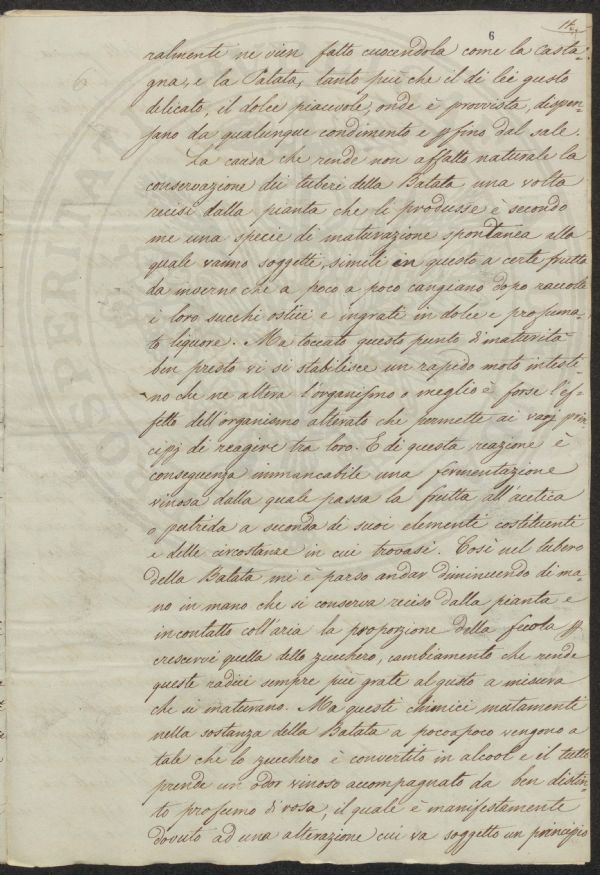 6
ralmente ne vien fatto cuocendola come la casta-
gna, e la Patata, tanto più che il di lei gusto
delicato, il dolce piacevole, onde è provvista, dispen-
sano da qualunque condimento e pfino dal sale.
La causa che rende non affatto naturale la
conservazione dei tuberi della Batata una volta
recisi dalla pianta che li produsse è secondo
me una specie di maturazione spontanea alla
quale vanno soggetti, simili in questo a certe frutta
da inverno che a poco a poco cangiano dopo raccolte
i loro succhi ostici e ingrati in dolce e profuma-
to liquore. Ma toccato questo punto di maturità
ben presto vi si stabilisce un rapido moto intesti-
no che ne altera l'organismo o meglio è forse l'ef-
fetto dell'organismo alterato che permette ai varj prin-
cipj di reagire tra loro. E di questa reazione è
conseguenza immancabile una fermentazione
vinosa dalla quale passa la frutta all'acetica
o putrida a seconda de' suoi elementi costituenti
e delle circostanze in cui trovasi. Così nel tubero
della Batata mi è parso andar diminuendo di ma-
no in mano che si conserva reciso dalla pianta e
in contatto coll'aria la proporzione della fecola p
crescervi quella dello zucchero, cambiamento che rende
queste radici sempre più grate al gusto a misura
che si maturano. Ma questi chimici mutamenti
nella sostanza della Batata a poco a poco vengono a
tale che lo zucchero è convertito in alcool e il tutto
prende un odor vinoso accompagnato da ben distin-
to profumo di rosa, il quale è manifestamente
dovuto ad una alterazione cui va soggetto un principio